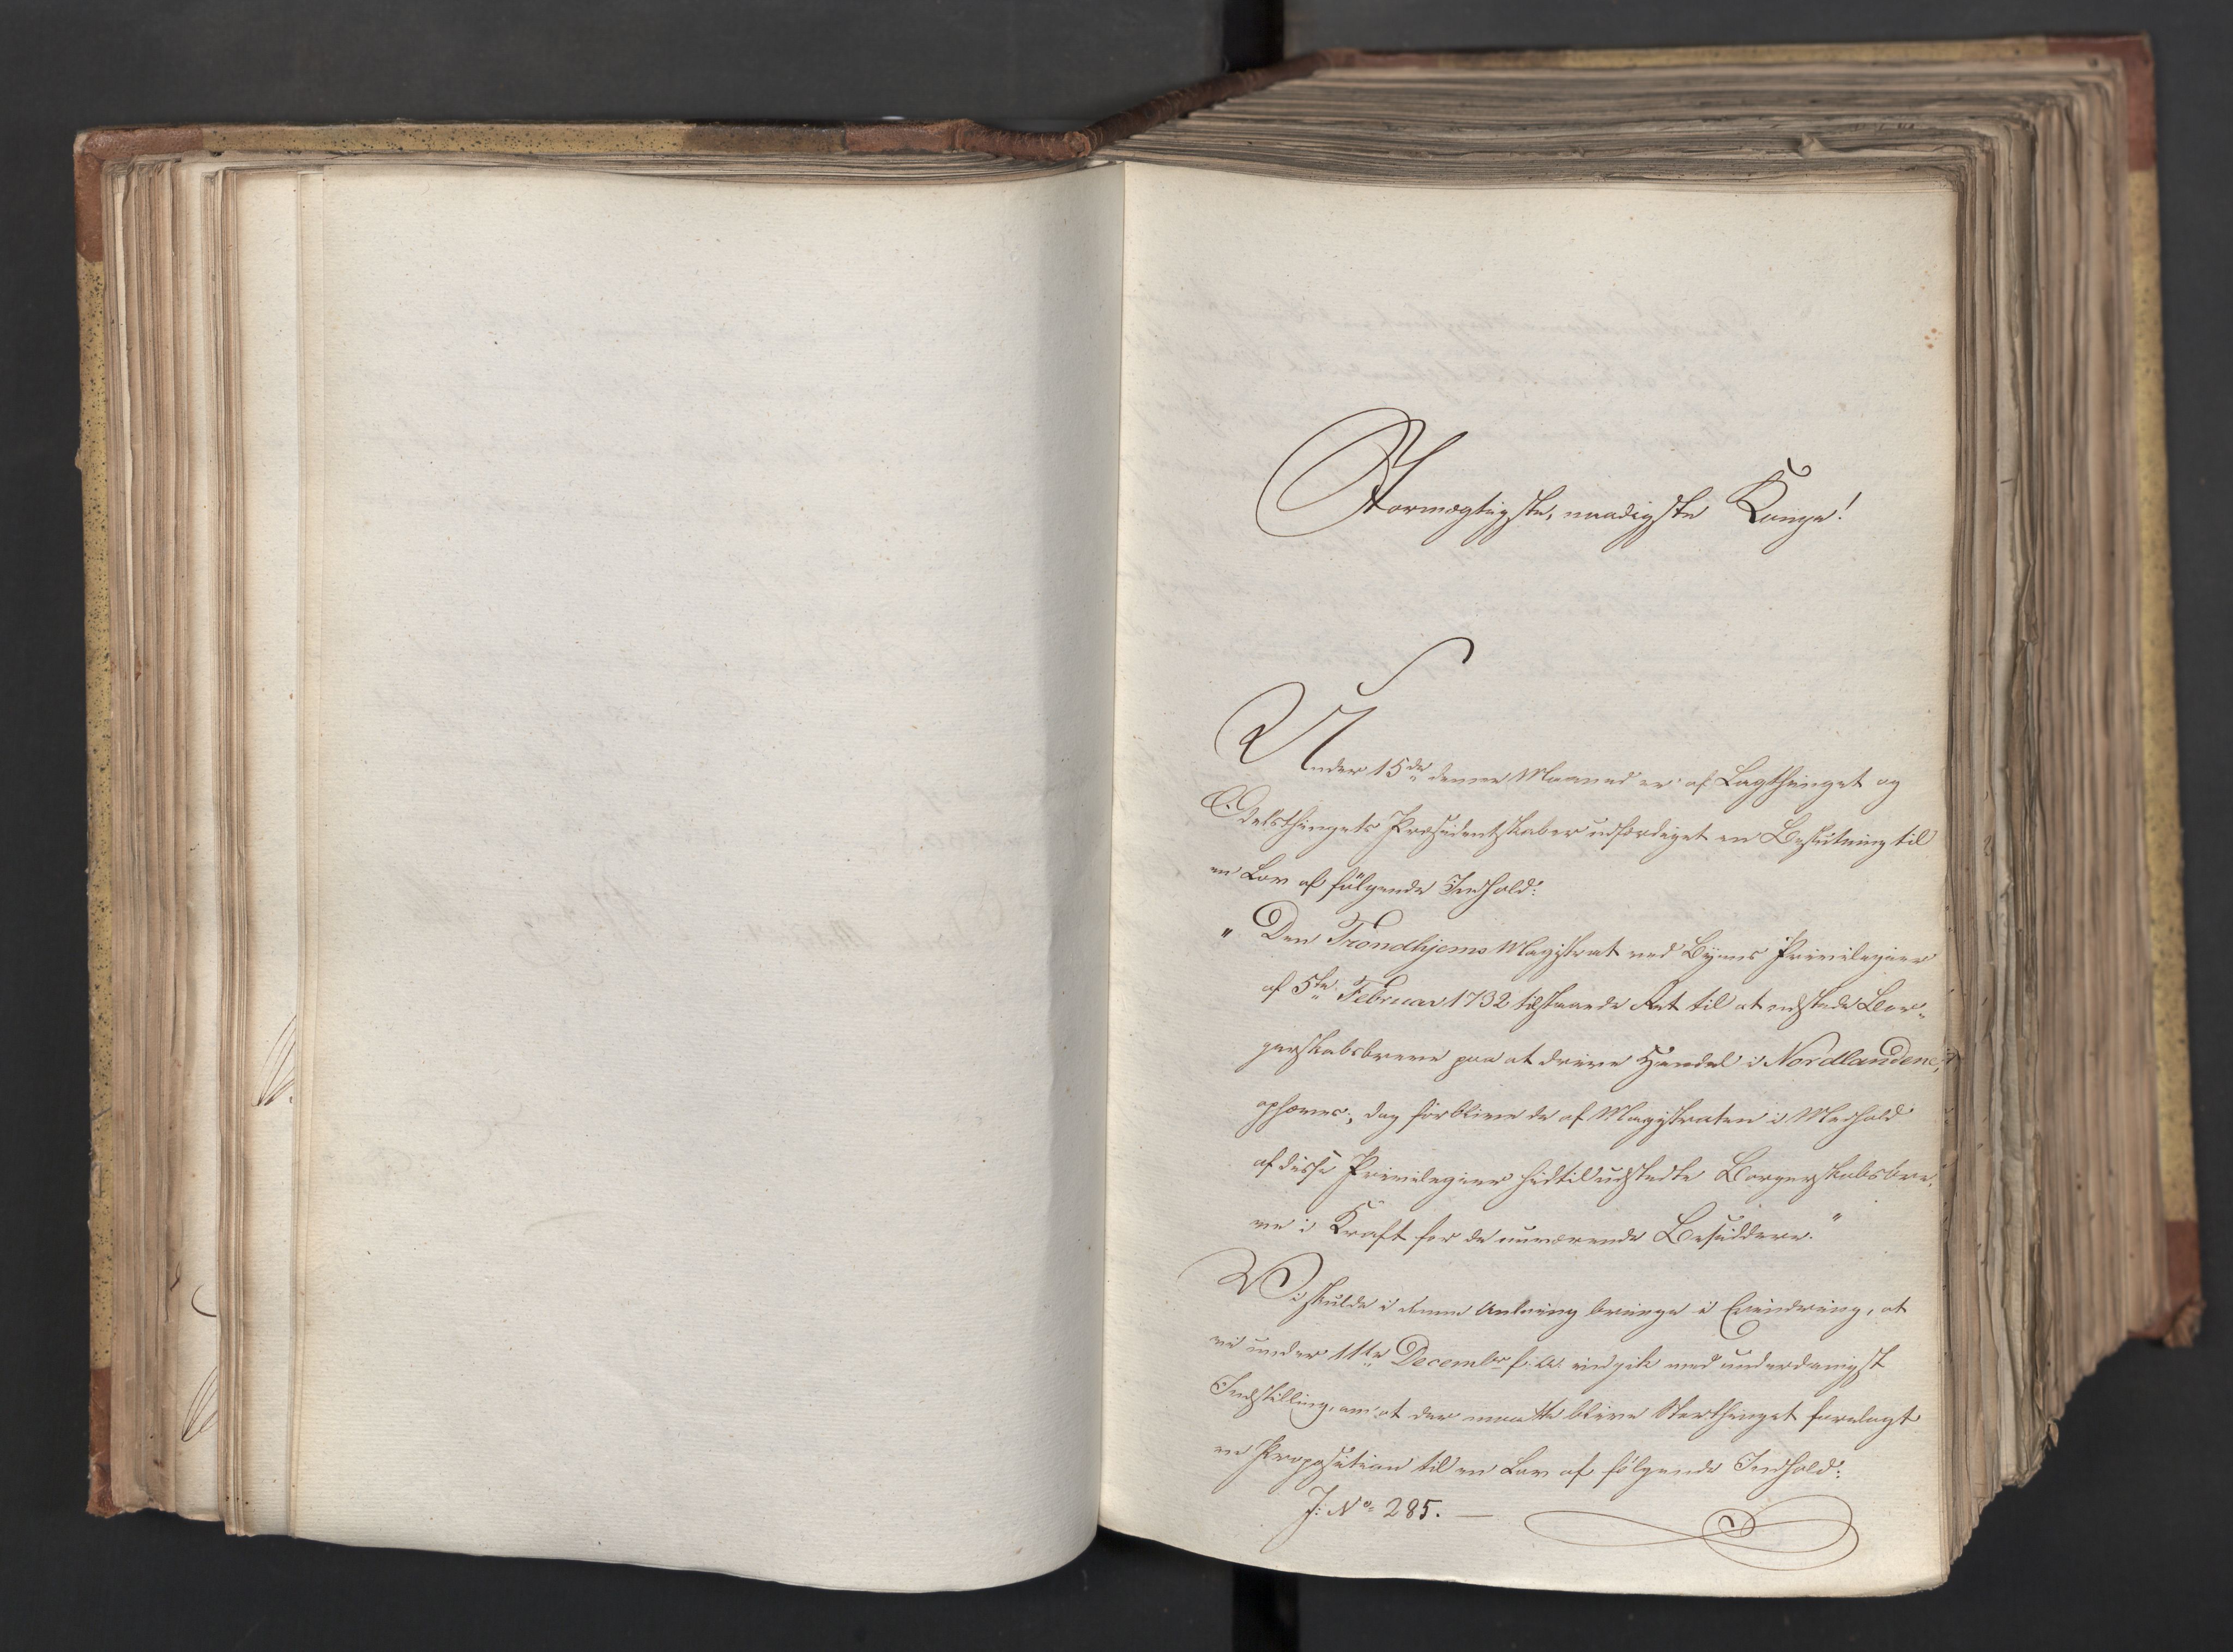 Stormægtigste, naadigste Konge!
Under 15de denne Maaned er af Lagthinget og
Odelsthingets Præsidentskaber udfærdiget en Beslutning til
en Lov af følgende Indhold:
„Den Trondhjems Magistrat ved Byens Privilegier
af 5te Februar 1732 tilstaaede Ret til at udstede Bor-
gerskabsbreve paa at drive Handel i Nordlandene,
ophæves; dog forblive de af Magistraten i Medhold
af disse Privilegier hidtil udstedte Borgerskabsbre-
ve i Kraft for de nuværende Besiddere.“
Vi skulde i denne Anledning bringe i Erindring, at
vi under 11te Decembr f: A: indgik med underdanigst
Indstilling, om at der maatte blive Storthinget forelagt
en Proposition til en Lov af følgende Indhold:
J: No 285. —